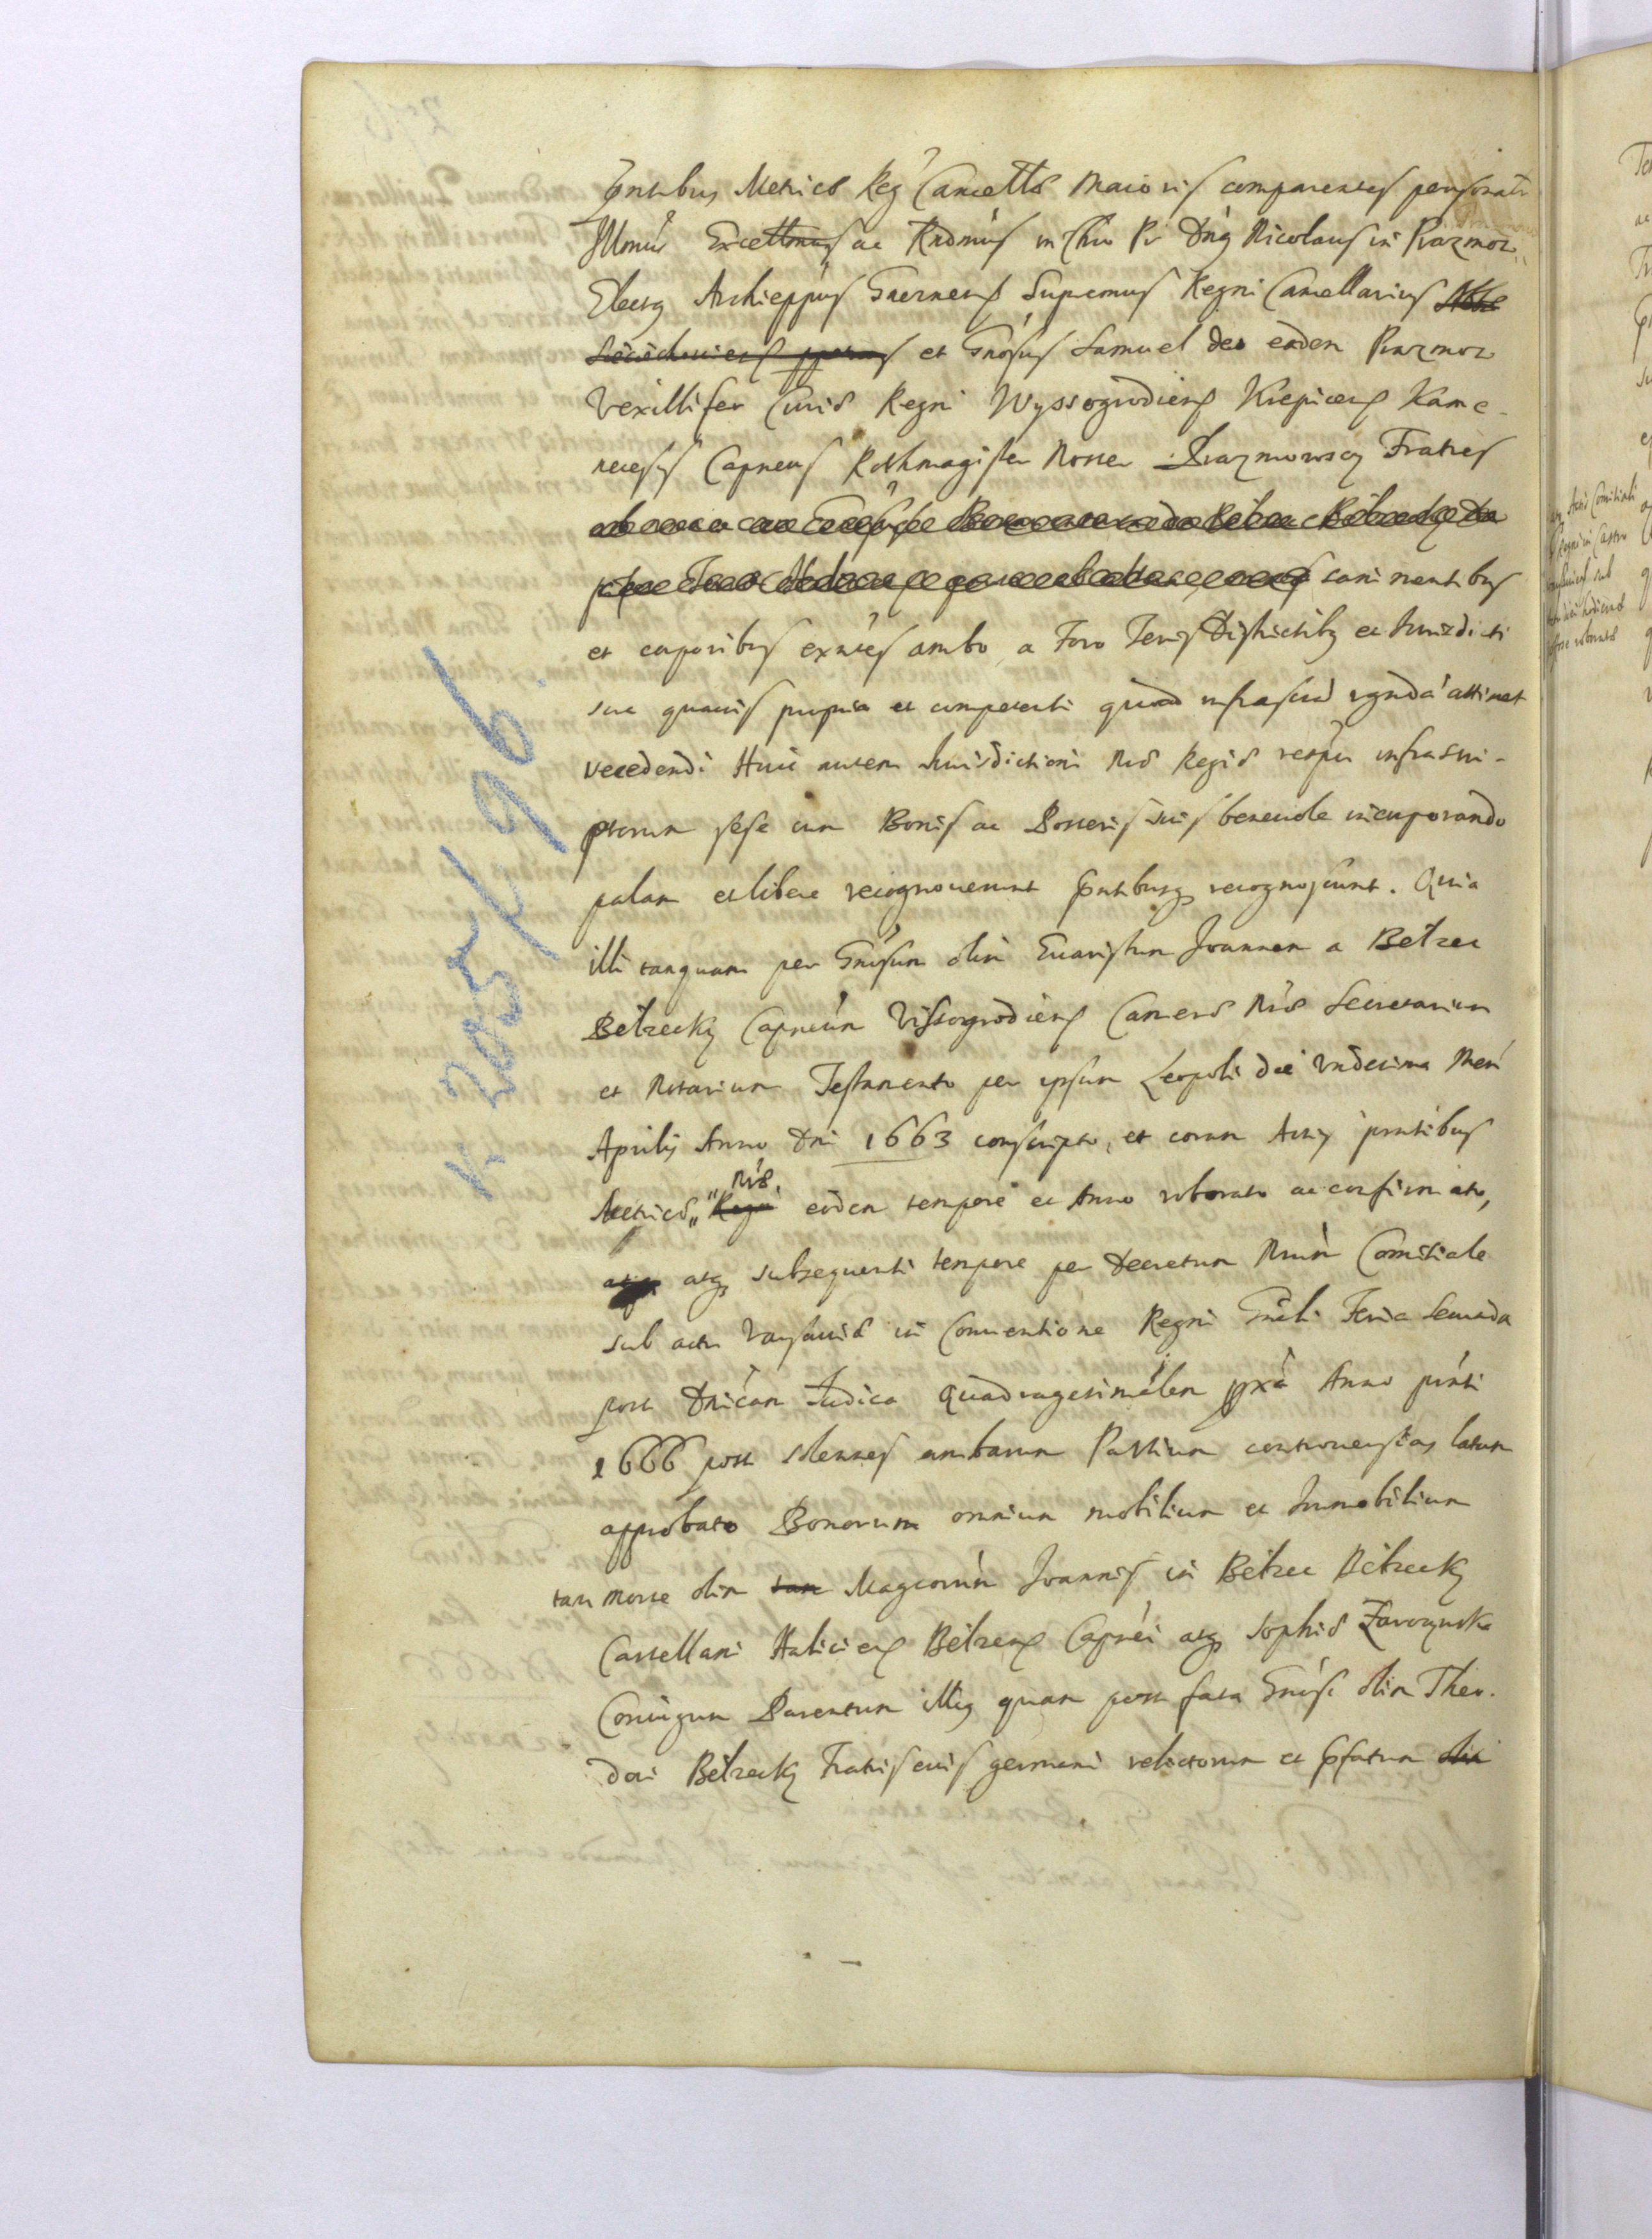 Pntibus Metrices Reg Cancellae Maioris comparentes personatr
Illmus Excellmus ac Rndmus in Chro Pr Dnus Nicolaus in Prazmow
Electus Archieppus Gnesnens Supremus Regni Cancellarius
et Gnosus Samuel de eadem Prazmow
Vexillifer Curiae Regni Wyssogrodiens Krepicens Kame-
necens Capneus Rothmagister Noster Prazmowscy Fratres
sani mentibus
et corporibus exntes ambo a Foro Terris Districtibus et Jurisdicti
sua quavis propria et competenti quoad infrascrd rgnda attinet
recedendi Huic autem Jurisdictioni Nrae Regiae respu infrascri-
ptorum sese cum Bonis ac Posteris suis benevole incorporando
palam et libere recognoverunt pntibusq recognoscunt. Quia
illi tanquam per Gnosum olim Evaristum Joannem a Bełzec
Bełzecky Capneum Vissogrodiens Camerae Nrae Secretarium
et Notarium Testamento per ipsum Leopoli die Undecima Men
Aprilis Anno Dni 1663 conscripto, et coram Actis pntibus
Metrices „Regni „Nrae eodem tempore et Anno roborato ac confirmato,
atq subsequenti tempore per Decretum Nrum Comitiale
sub actu Varsaviae in Conventione Regni Gnali Feria Secunda
post Dnicam Judica Quadragesimalem pxa Anno pnti
1666 post solennes ambarum Partium controversias latum
approbato Bonorum omnium mobilium et Immobilium
tam morte olim tam Magcorum Joannis in Bełzec Bełzecky
Castellani Haliciens Bełzens Capnei atq Sophiae Zaroznska
Coniugum Parentum illius quam post fata Gnosi olim Theo-
dori Bełzecky Fratris eius germani relictorum et pfatum olim
K. 205/96.